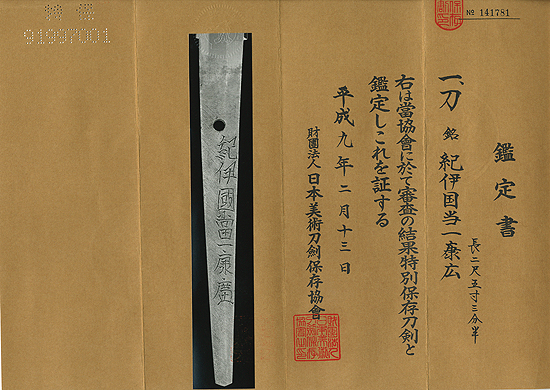 No 141781
鑑定書
一、刀 銘 紀伊国当一康広
長二尺五寸三分半
右は當協會に於て審査の結果特別保存刀剣と
鑑定しこれを証する
平成九年二月十三日
財團法人 日本美術刀劍保存協會
紀伊國當一康廣
特保
91997001